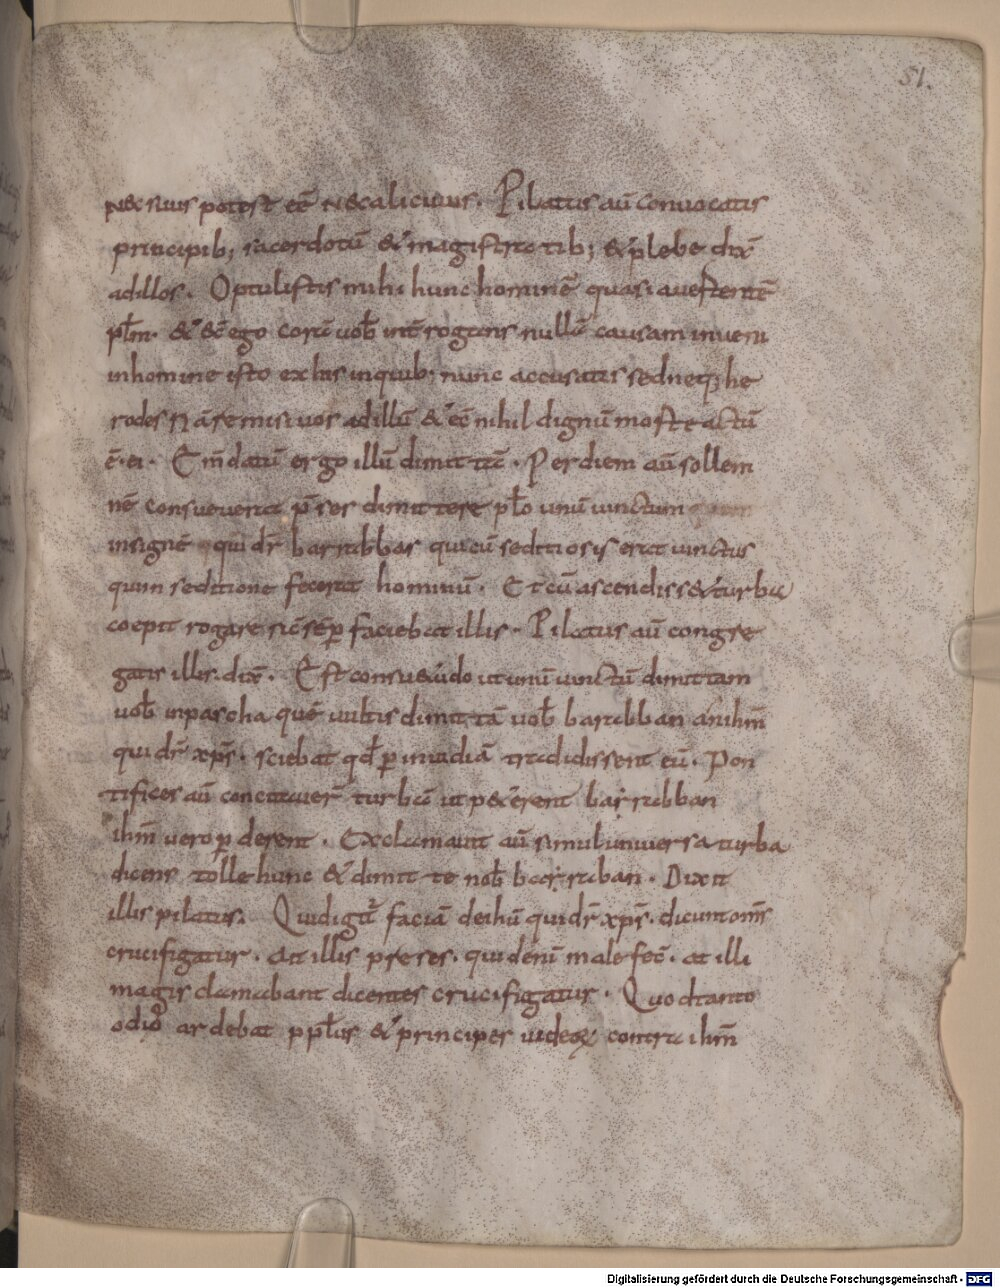 51.
nec suus potest eē nec alicuius. Pilatus aū conuocatis
principib; sacerdotū & magistratib; & plebe dix̄
adillos. Optulistis mihi hunc hominē quasi auertentē
pl̄m. & ecē ego corā uob̄ int̄rogans nullā causam inueni
inhomine isto exhis inquib; eum accusatis sed neq; he
rodes nā remisi uos adillū & ecē nihil dignū morte actū
ē. ei. Em̄datū ergo illū dimittā. Per diem aū sollem
nē consueuerat p̄ses dimittere pl̄o unū uinctum
insignē qui dr̄ barrabbas qui cū seditiosis erat uinctus
qui in seditione fecerat hominū. Et cū ascendiss& turba
coepit rogare sic sēp faciebat illis. Pilatus aū congre
gatis illis. dix̄. Est consu&udo ut unū uinctū dimittam
uob̄ inpascha quē uultis dimittā uob̄ barabban an ihm̄
qui dr̄ xp̄s. sciebat qd̄ p inuidiā tradidissent eū. Pon
tifices aū concitauer̄ turbā ut p&erent barrabban
ihm̄ uero pderent. Exclamauit aū simul uniuersa turba
dicens tolle hunc & dimitte nob̄ barraban. Dixit
illis pilatus. Quid igit̄ faciā de ihū qui dr̄ xp̄s. dicunt om̄s
crucifigatur. Ait illis preses. quid enī male fec̄. at illi
magis clamabant dicentes crucifigatur. Quod tanto
odio ardebat ppl̄us & principes iudeoꝝ contra ihm̄
Digitalisierung gefördert durch die Deutsche Forschungsgemeinschaft - DFG